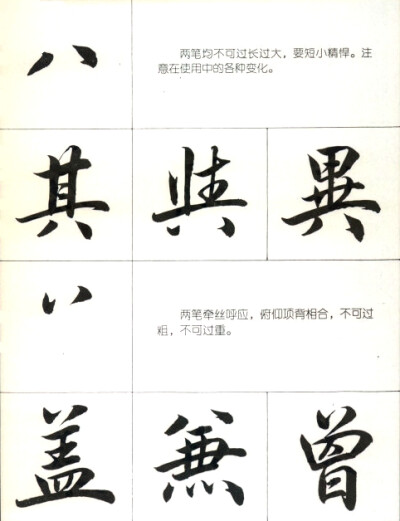 八
两笔均不可过长过大，要短小精悍。注
意在使用中的各种变化。
其 異
两笔牵丝呼应，俯仰项背相合，不可过
粗，不可过重。
盖 兼 曾